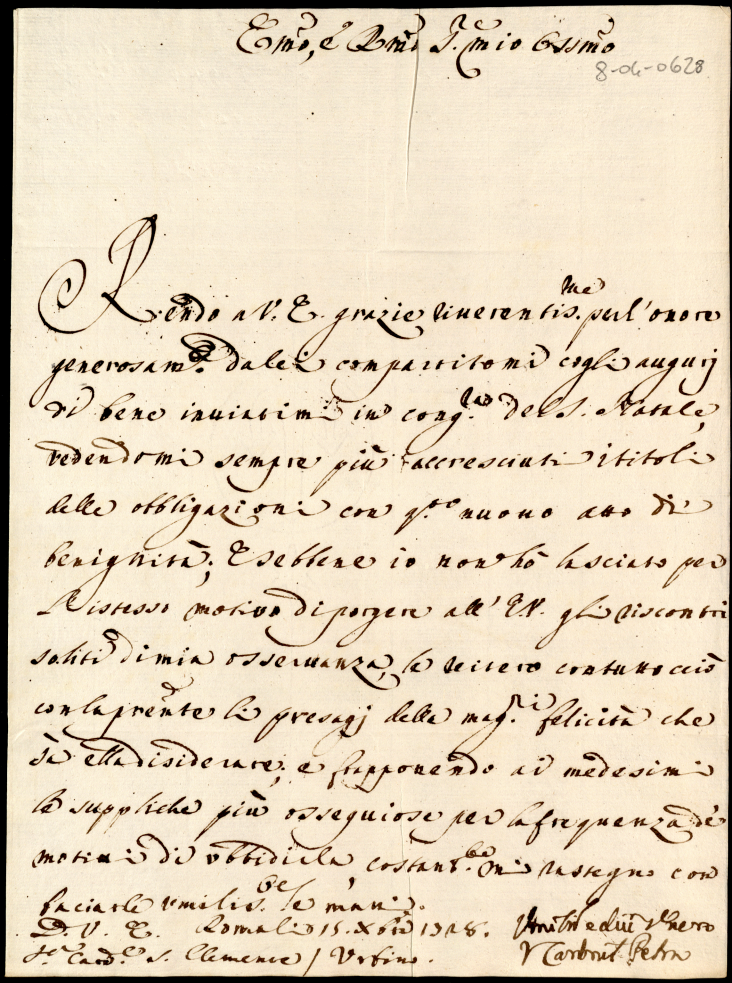 Emo, e Rmo Sr. mio Ossmo
8-04-0628
Rendo a V. E. grazie riverentis.me per l'onore
generosam.e da lei compartitomi cogli augurj
di bene inviatimi in cong.ra del S. Natale,
vedendomi sempre più accresciuti i titoli
delle obbligazioni con q.to nuovo atto di
benignità; E sebbene io non hò lasciato per
l'istesso motivo di porgere all' E.V. gli riscontri
soliti di mia osservanza, le reitero contuttociò
con la pre͠nte li presagj della mag.ri felicità che
sà ella disiderare; e frapponendo ai medesimi
le suppliche più ossequiose per la frequenza de'
motivi di obbidirla, costant.be mi rassegno con
baciarle umilis.e le mani.
D. V. E. Roma li 15. Xbre 1728.
Sr. Card.le S. Clemente / Urbino.
Petra